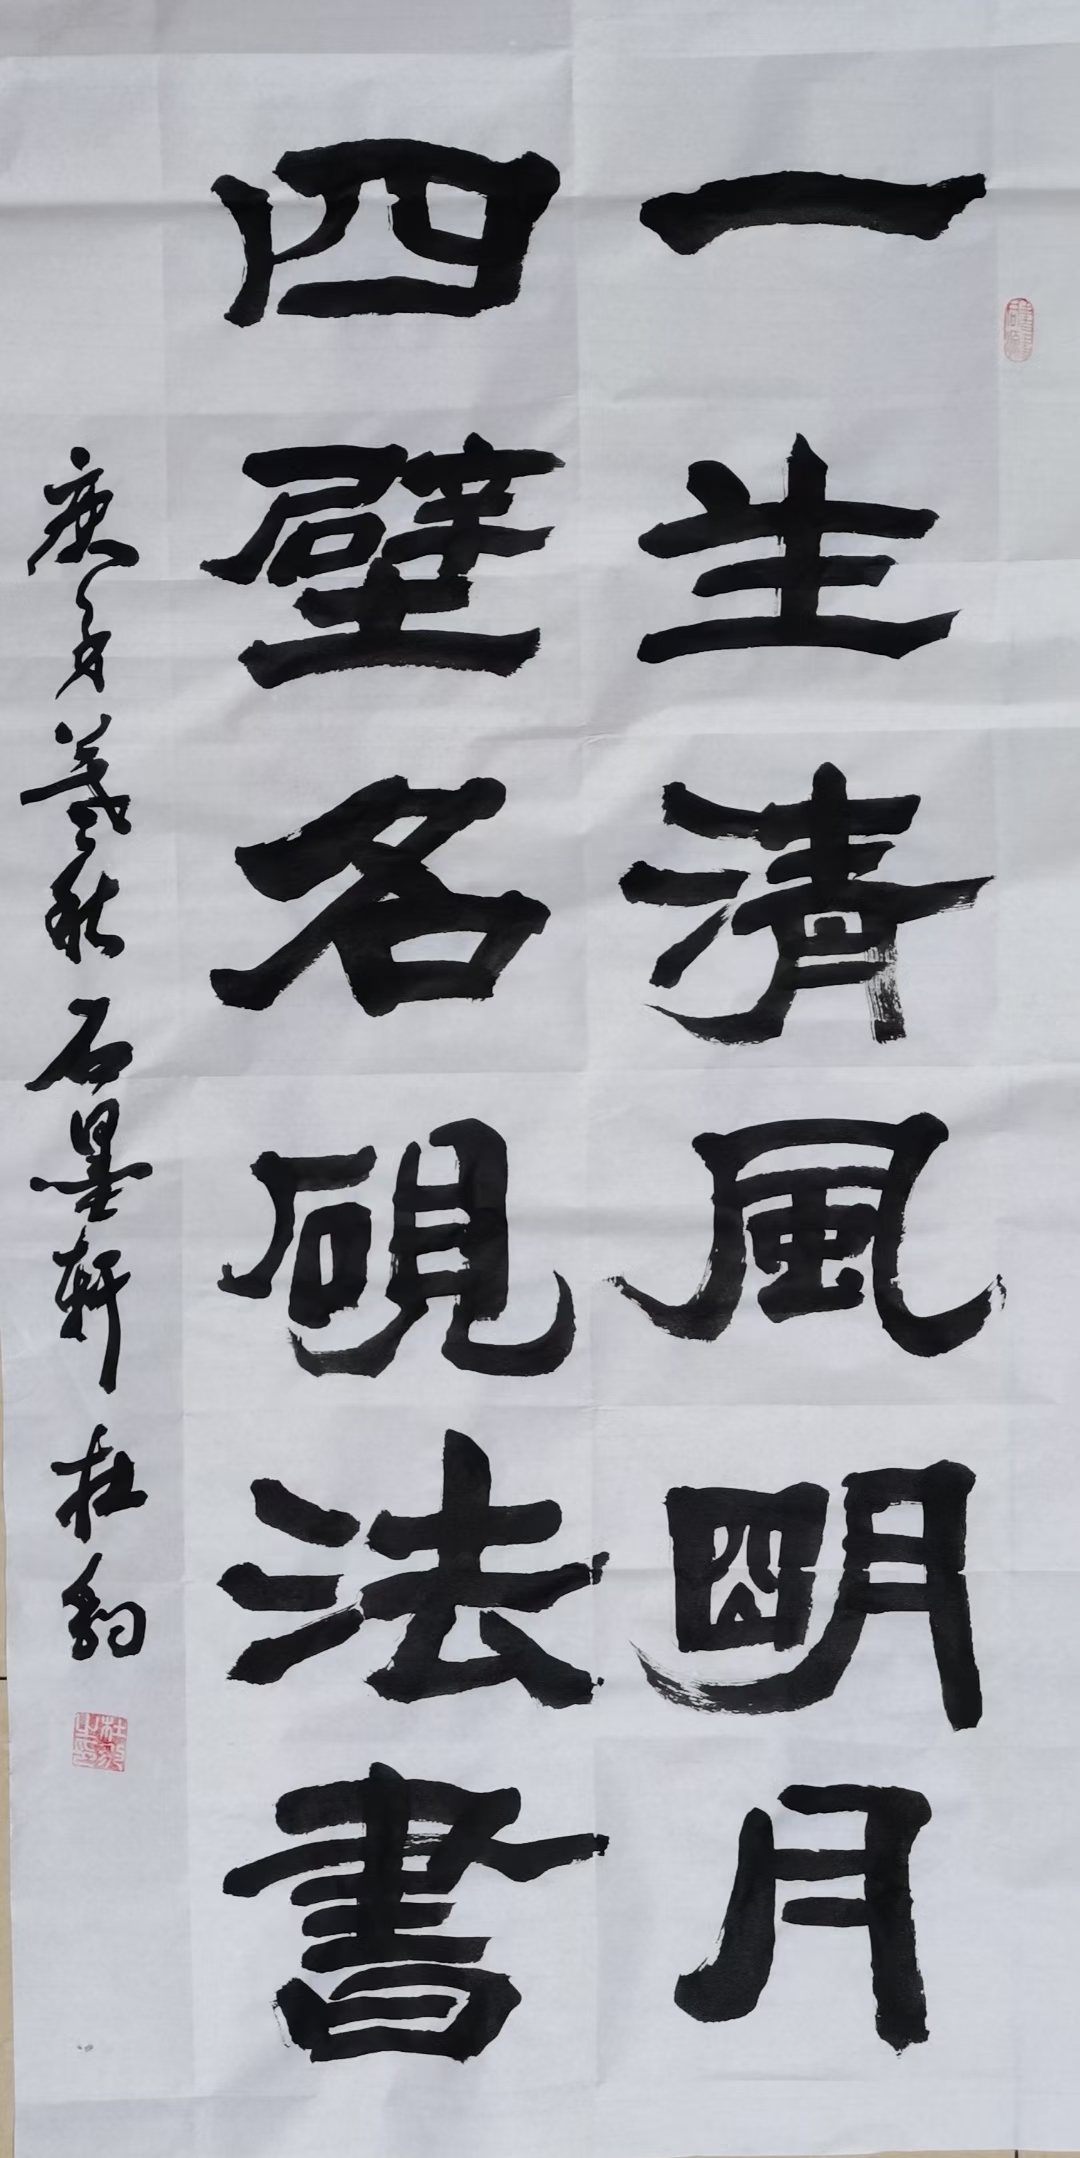 一生清風明月
四壁名硯法書
庚 秋石墨軒 杜